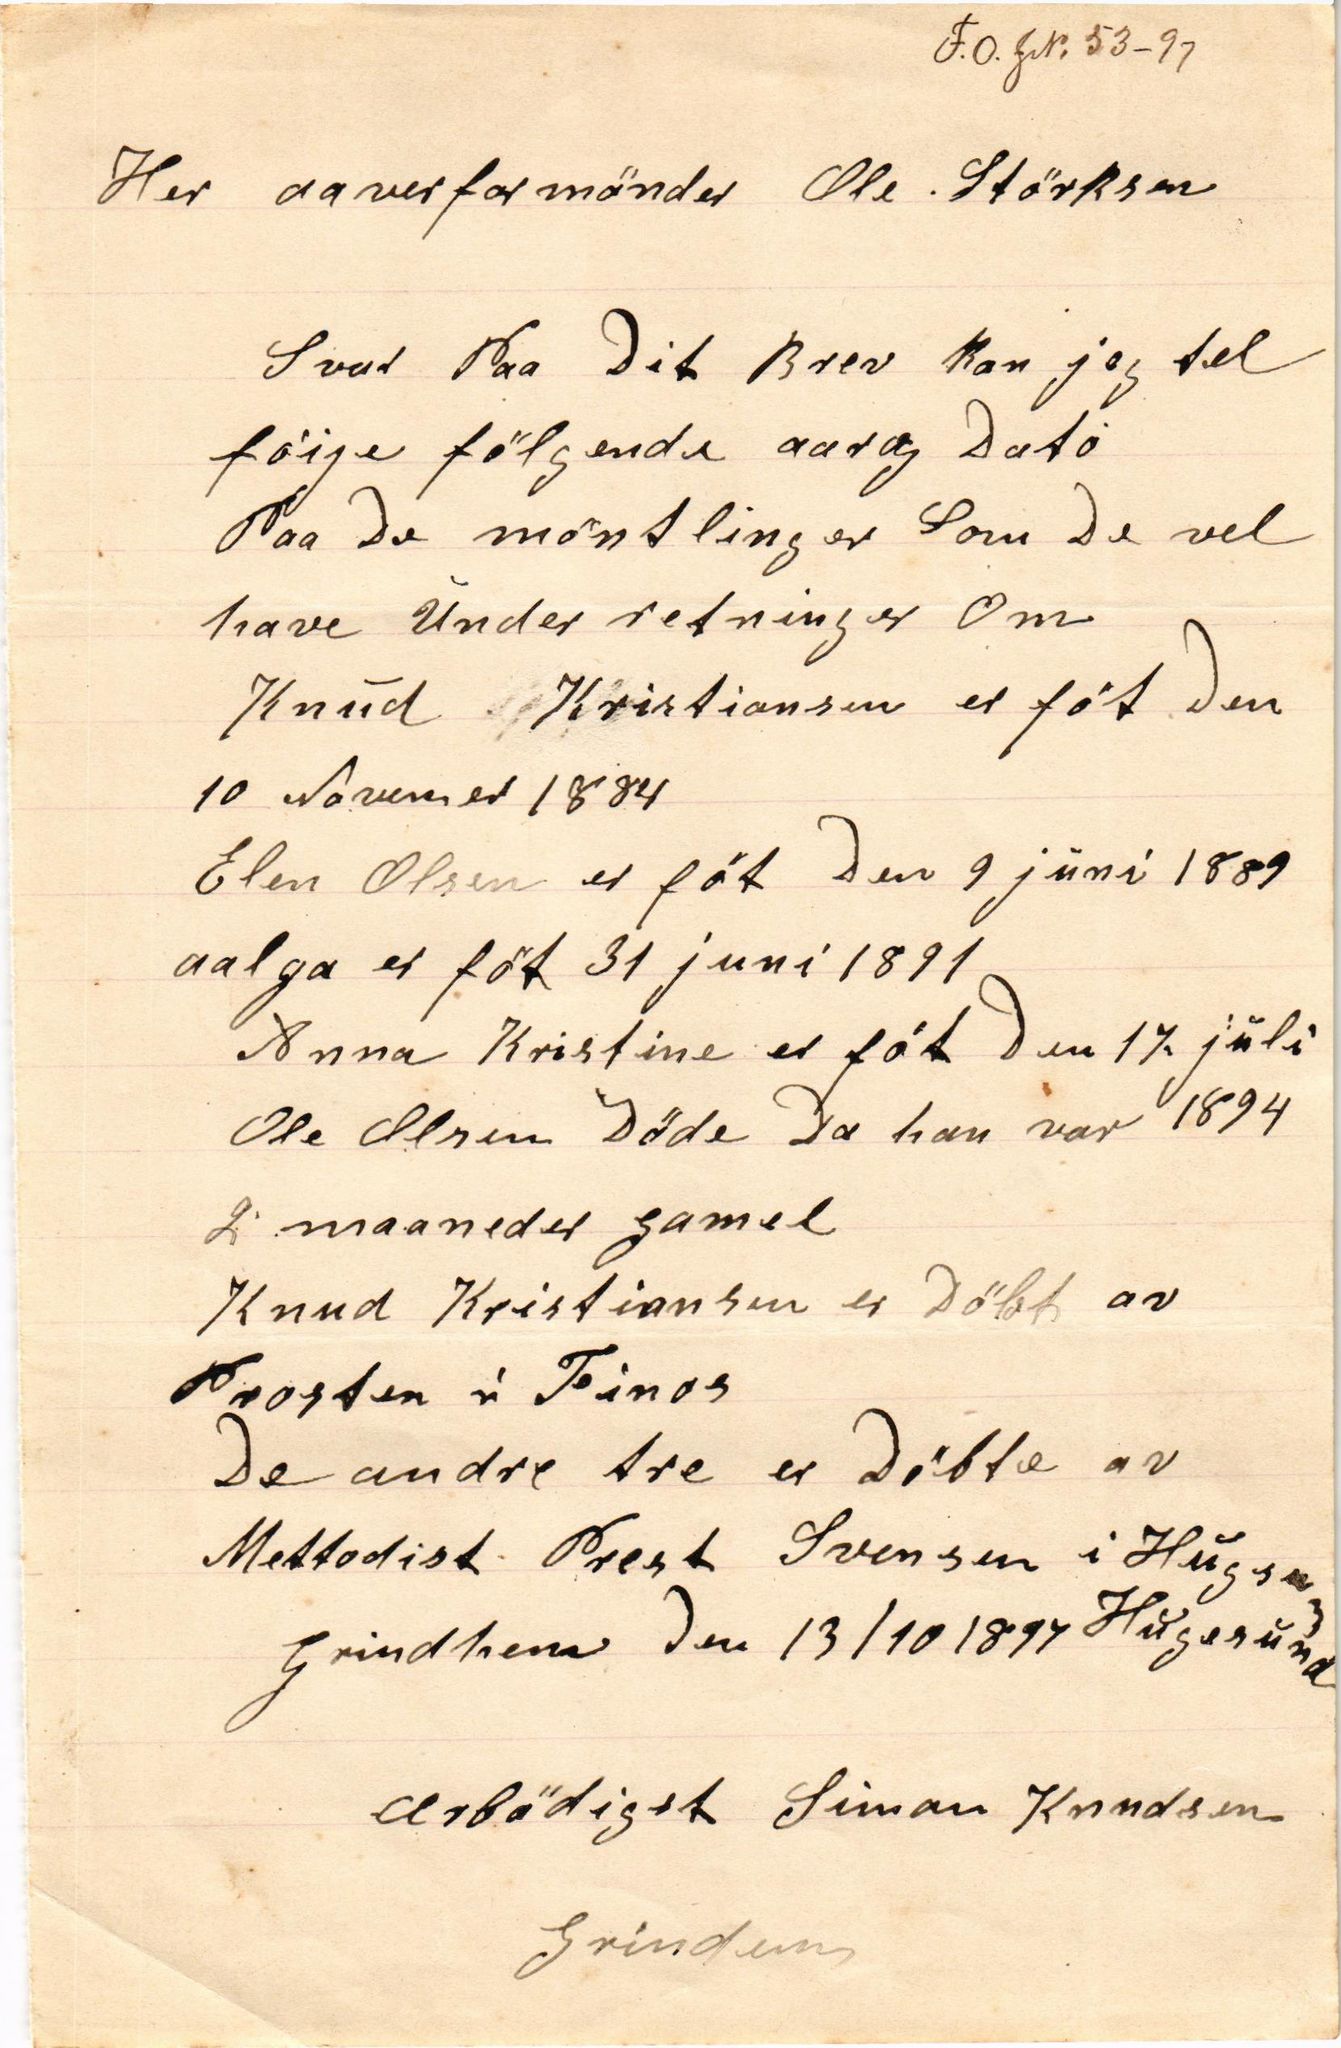 F.O. JN. 53-97
Her aaverformönder Ole Störksen
Svar Paa Dit Brev kan jeg tel
föige fölgende aar og Dato
Paa De möntlinger Som De vel
have Under retninger Om
Knud Kristiansen er föt Den
10 Novemer 1884
Elen Olsen er föt Den 9 juni 1889
aalga er föt 31 juni 1891
Anna Kristine er föt Den 17 juli
1894
Ole Olsen Döde Da han var
2 maaneder gamel
Knud Kristiansen er Döbt av
Prosten i Finos
De andre tre er Döbte av
Mettodist Prest Svensen i Hugesund
Grindhem Den 13/10 1897 Hugesund
Ærbödigst Simon Knudsen
Grindem